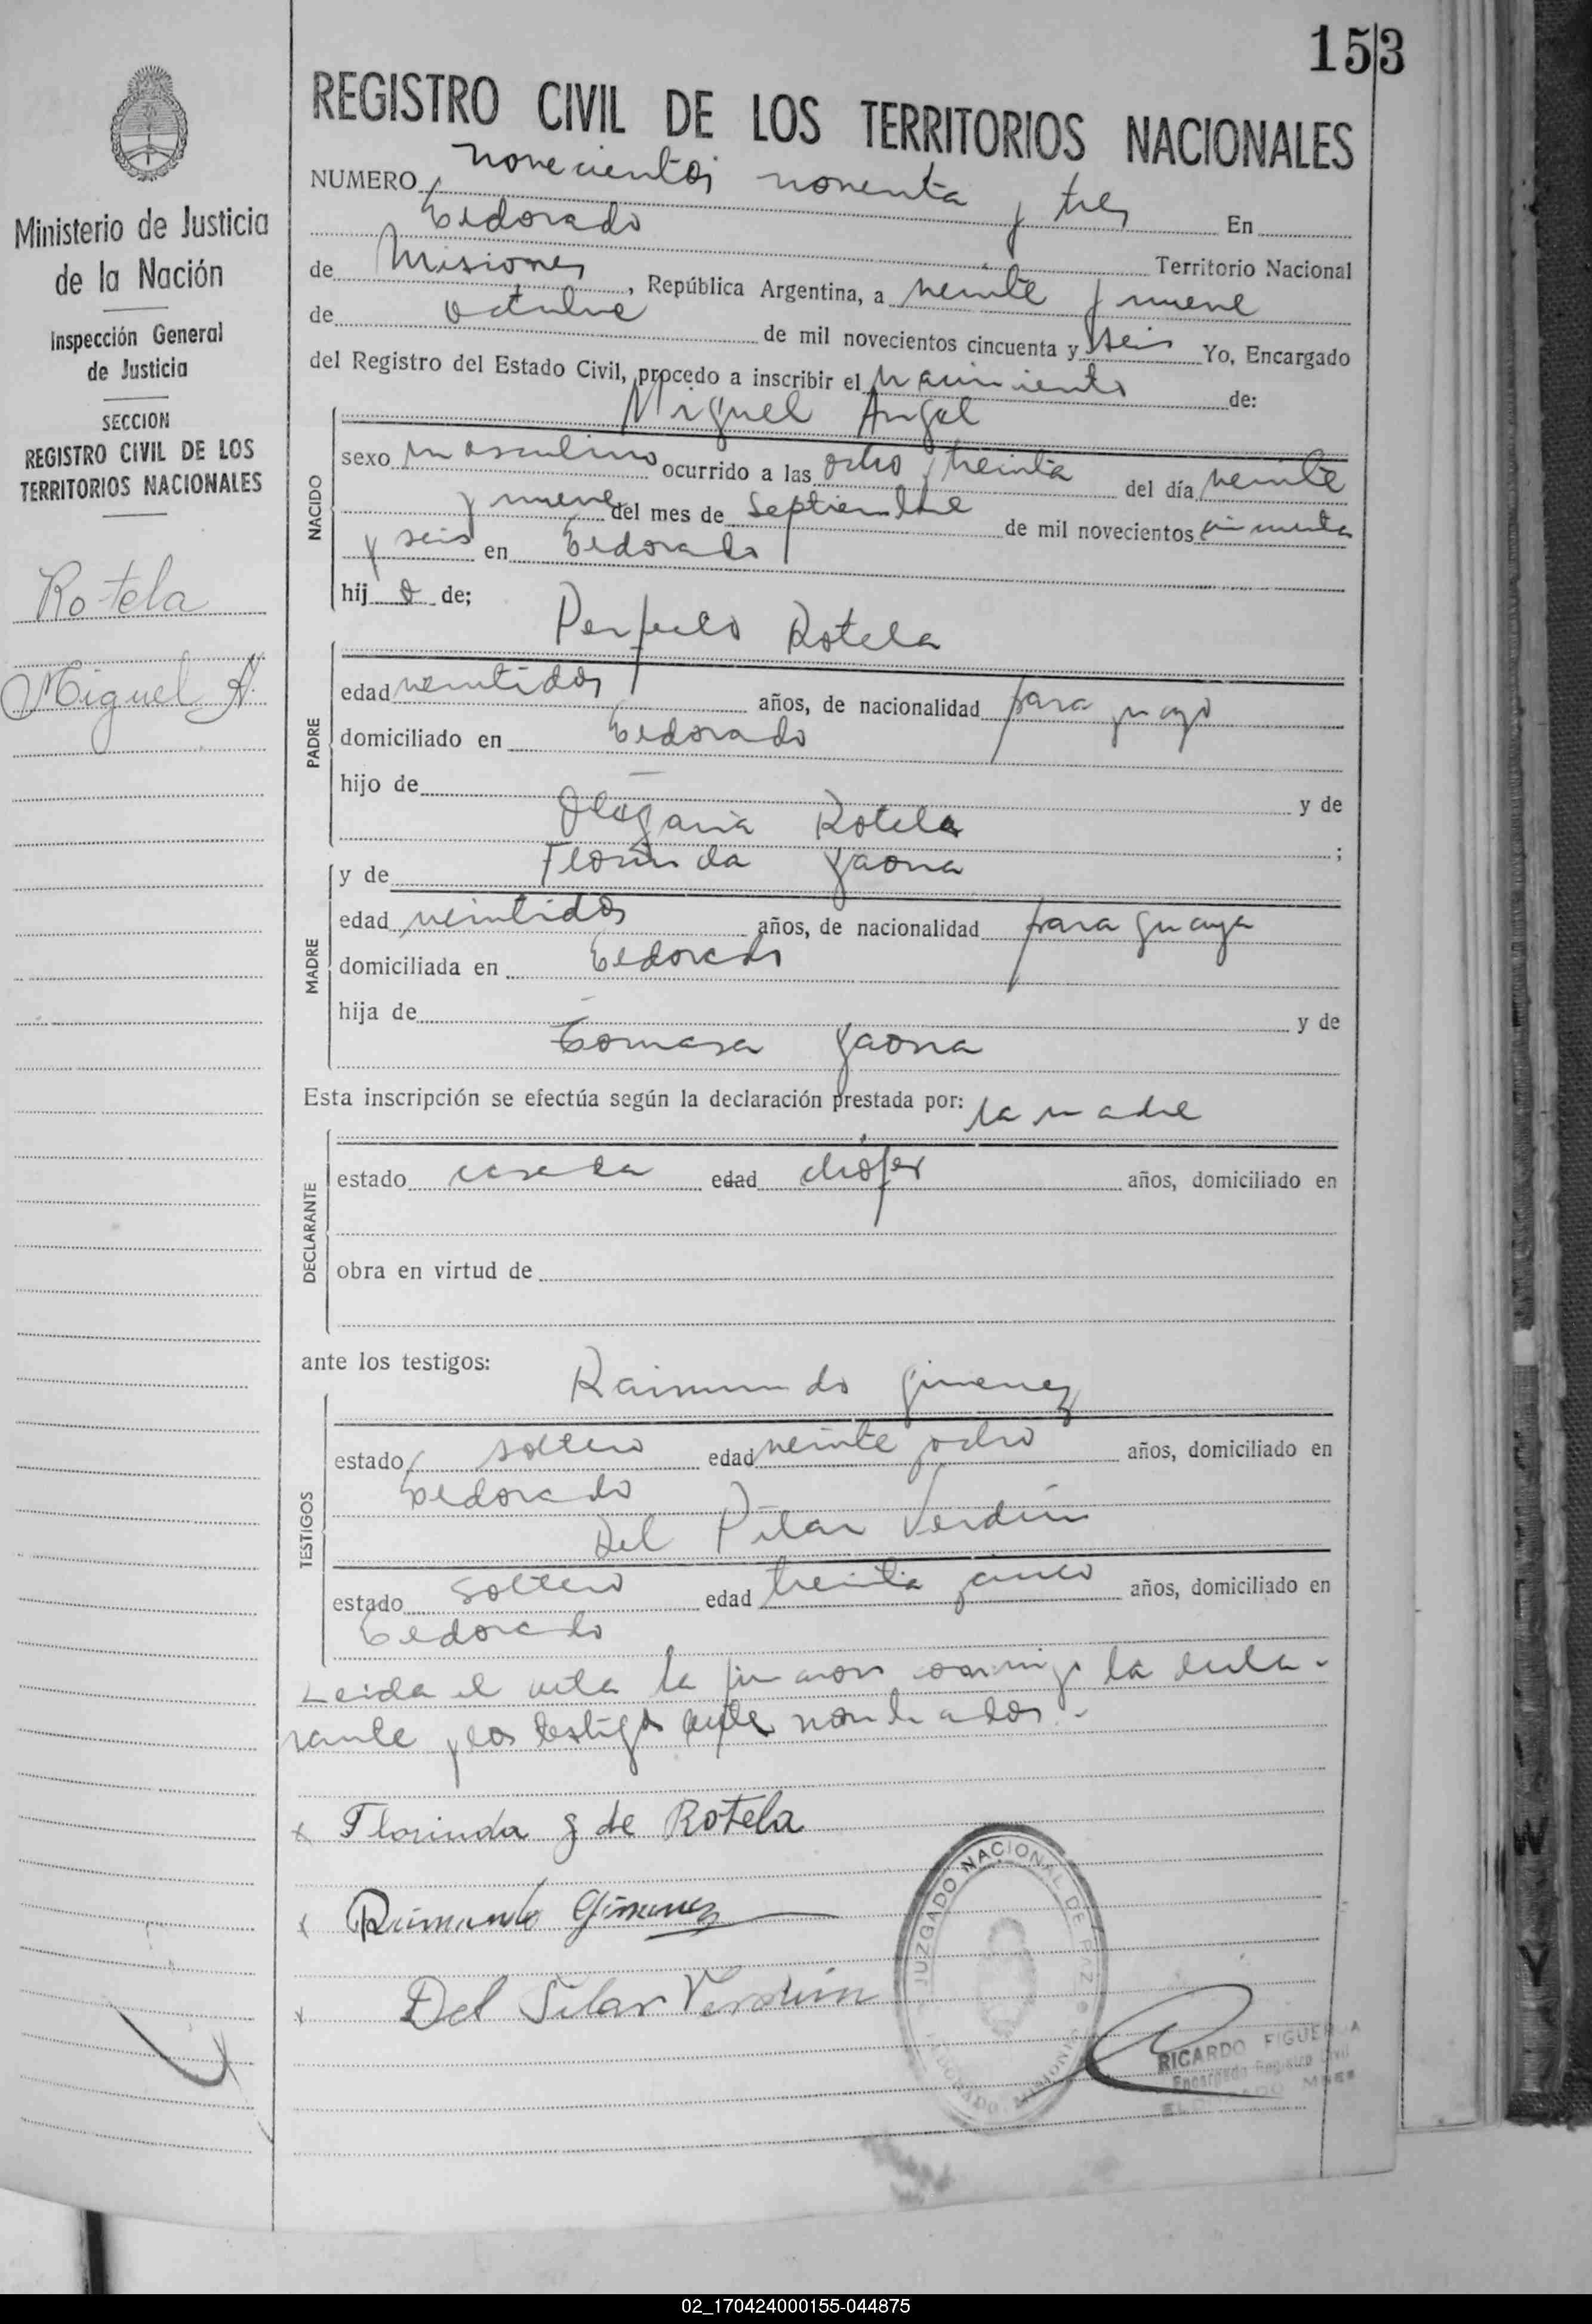 153
REGISTRO CIVIL DE LOS TERRITORIOS NACIONALES
Ministerio de Justicia
de la Nación
Inspección General
de Justicia
SECCION
REGISTRO CIVIL DE LOS
TERRITORIOS NACIONALES
Rotela
Miguel A.
NUMERO novecientos noventa y tres En
Eldorado Territorio Nacional
de Misiones, República Argentina, a veinte y nueve
de octubre de mil novecientos cincuenta y seis Yo, Encargado
del Registro del Estado Civil, procedo a inscribir el nacimiento de:
Miguel Angel
NACIDO
sexo masculino ocurrido a las ocho y treinta del día veinte
y nueve del mes de Septiembre de mil novecientos cincuenta
y seis en Eldorado
hij o de;
Perfecto Rotela
PADRE
edad veintidos años, de nacionalidad paraguayo
domiciliado en Eldorado
hijo de y de
Rotela ;
y de Florinda Gaona
MADRE
edad veintidos años, de nacionalidad paraguaya
domiciliada en Eldorado
hija de y de
Tomasa Gaona
Esta inscripción se efectúa según la declaración prestada por: la madre
DECLARANTE
estado casada edad chófer años, domiciliado en
obra en virtud de
ante los testigos:
Raimundo Gimenez
TESTIGOS
estado soltero edad veinte ocho años, domiciliado en
Eldorado
Del Pilar Verdún
estado soltero edad treinta cinco años, domiciliado en
Eldorado
Leida el acta la firmaron conmigo la decla-
rante y los testigos ante nombrados.-
x Florinda g de Rotela
x Raimundo Gimenez
x Del Pilar Verdún
JUZGADO NACIONAL DE PAZ
ELDORADO MISIONES
RICARDO FIGUEROA
Encargado Registro Civil
ELDORADO MNES
02_170424000155-044875